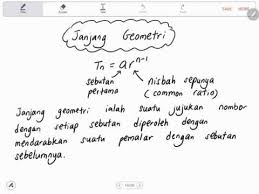 Janjang Geometri
Tn = arⁿ⁻¹
sebutan pertama
nisbah sepunya
(common ratio)
Janjang geometri ialah suatu jujukan nombor
dengan setiap sebutan diperoleh dengan
mendarabkan suatu pemalar dengan sebutan
sebelumnya.